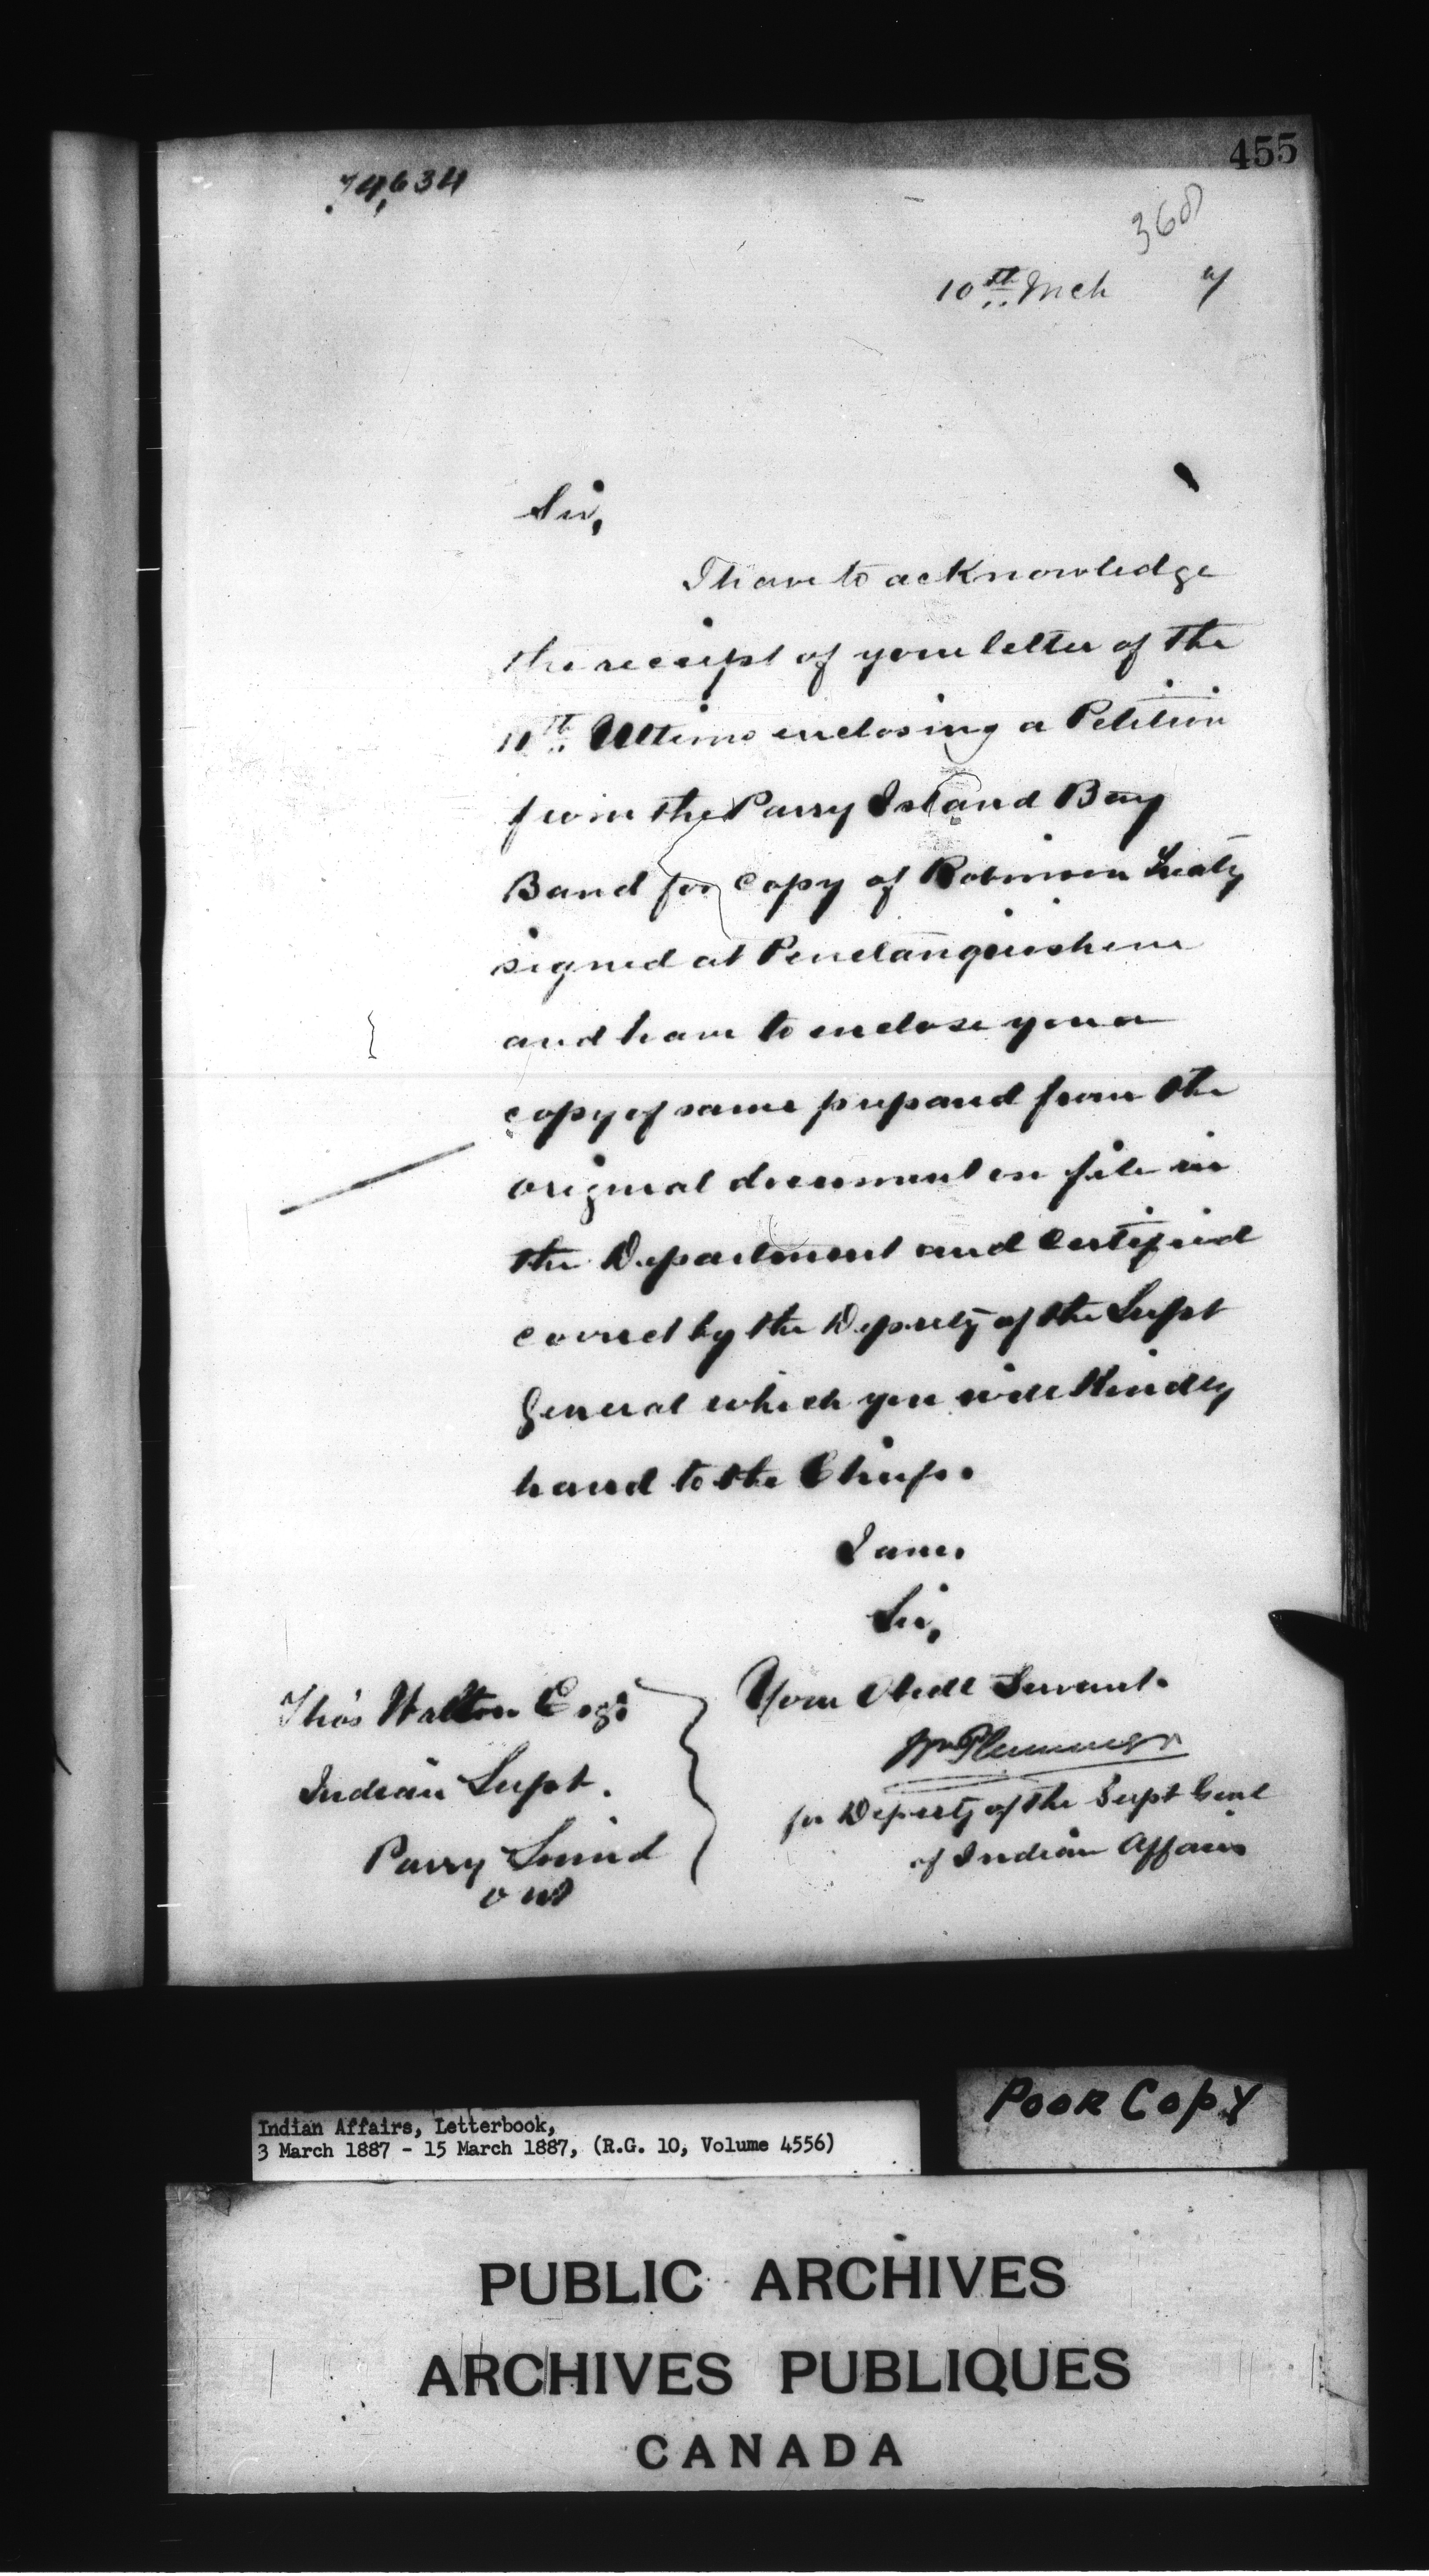 455
74,634
368
10th Mch 7
Sir,
I have to acknowledge
the receipt of your letter of the
11th Ultimo enclosing a Petition
from the Parry Island Bay
Band for copy of Robinson Treaty
signed at Penetanguishene
and have to enclose you a
copy of same prepared from the
original document on file in
the Department and Certified
correct by the Deputy of the Supt
General which you will Kindly
hand to the Chief.
I am.
Sir,
Your Obedt Servant.
Wm Plummer
for Deputy of the Supt Genl
of Indian Affairs
Thos Walton Esqr
Indian Supt.
Parry Sound
Ont
Indian Affairs, Letterbook,
3 March 1887 - 15 March 1887, (R.G. 10, Volume 4556)
POOR COPY
PUBLIC ARCHIVES
ARCHIVES PUBLIQUES
CANADA